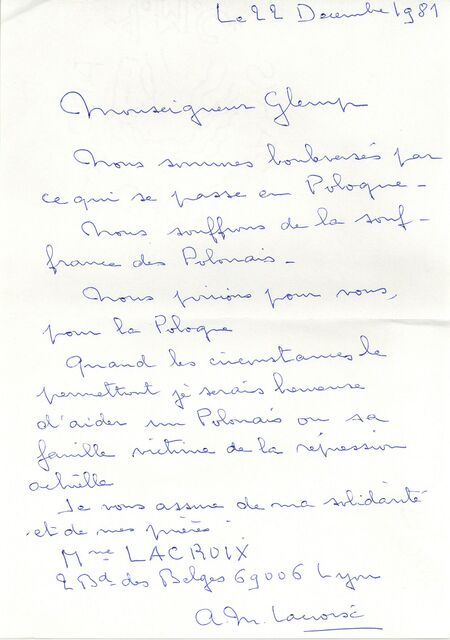 Le 22 Décembre 1981
Monseigneur Glemp
Nous sommes boulversés par
ce qui se passe en Pologne -
Nous souffrons de la souf-
france des Polonais -
Nous prions pour vous,
pour la Pologne
Quand les circonstances le
permettront je serais heureuse
d'aider un Polonais ou sa
famille victime de la répression
actuelle
Je vous assure de ma solidarité
et de mes prières.
Mme LACROIX
2 Bd des Belges 69006 Lyon
A.M. Lacroix